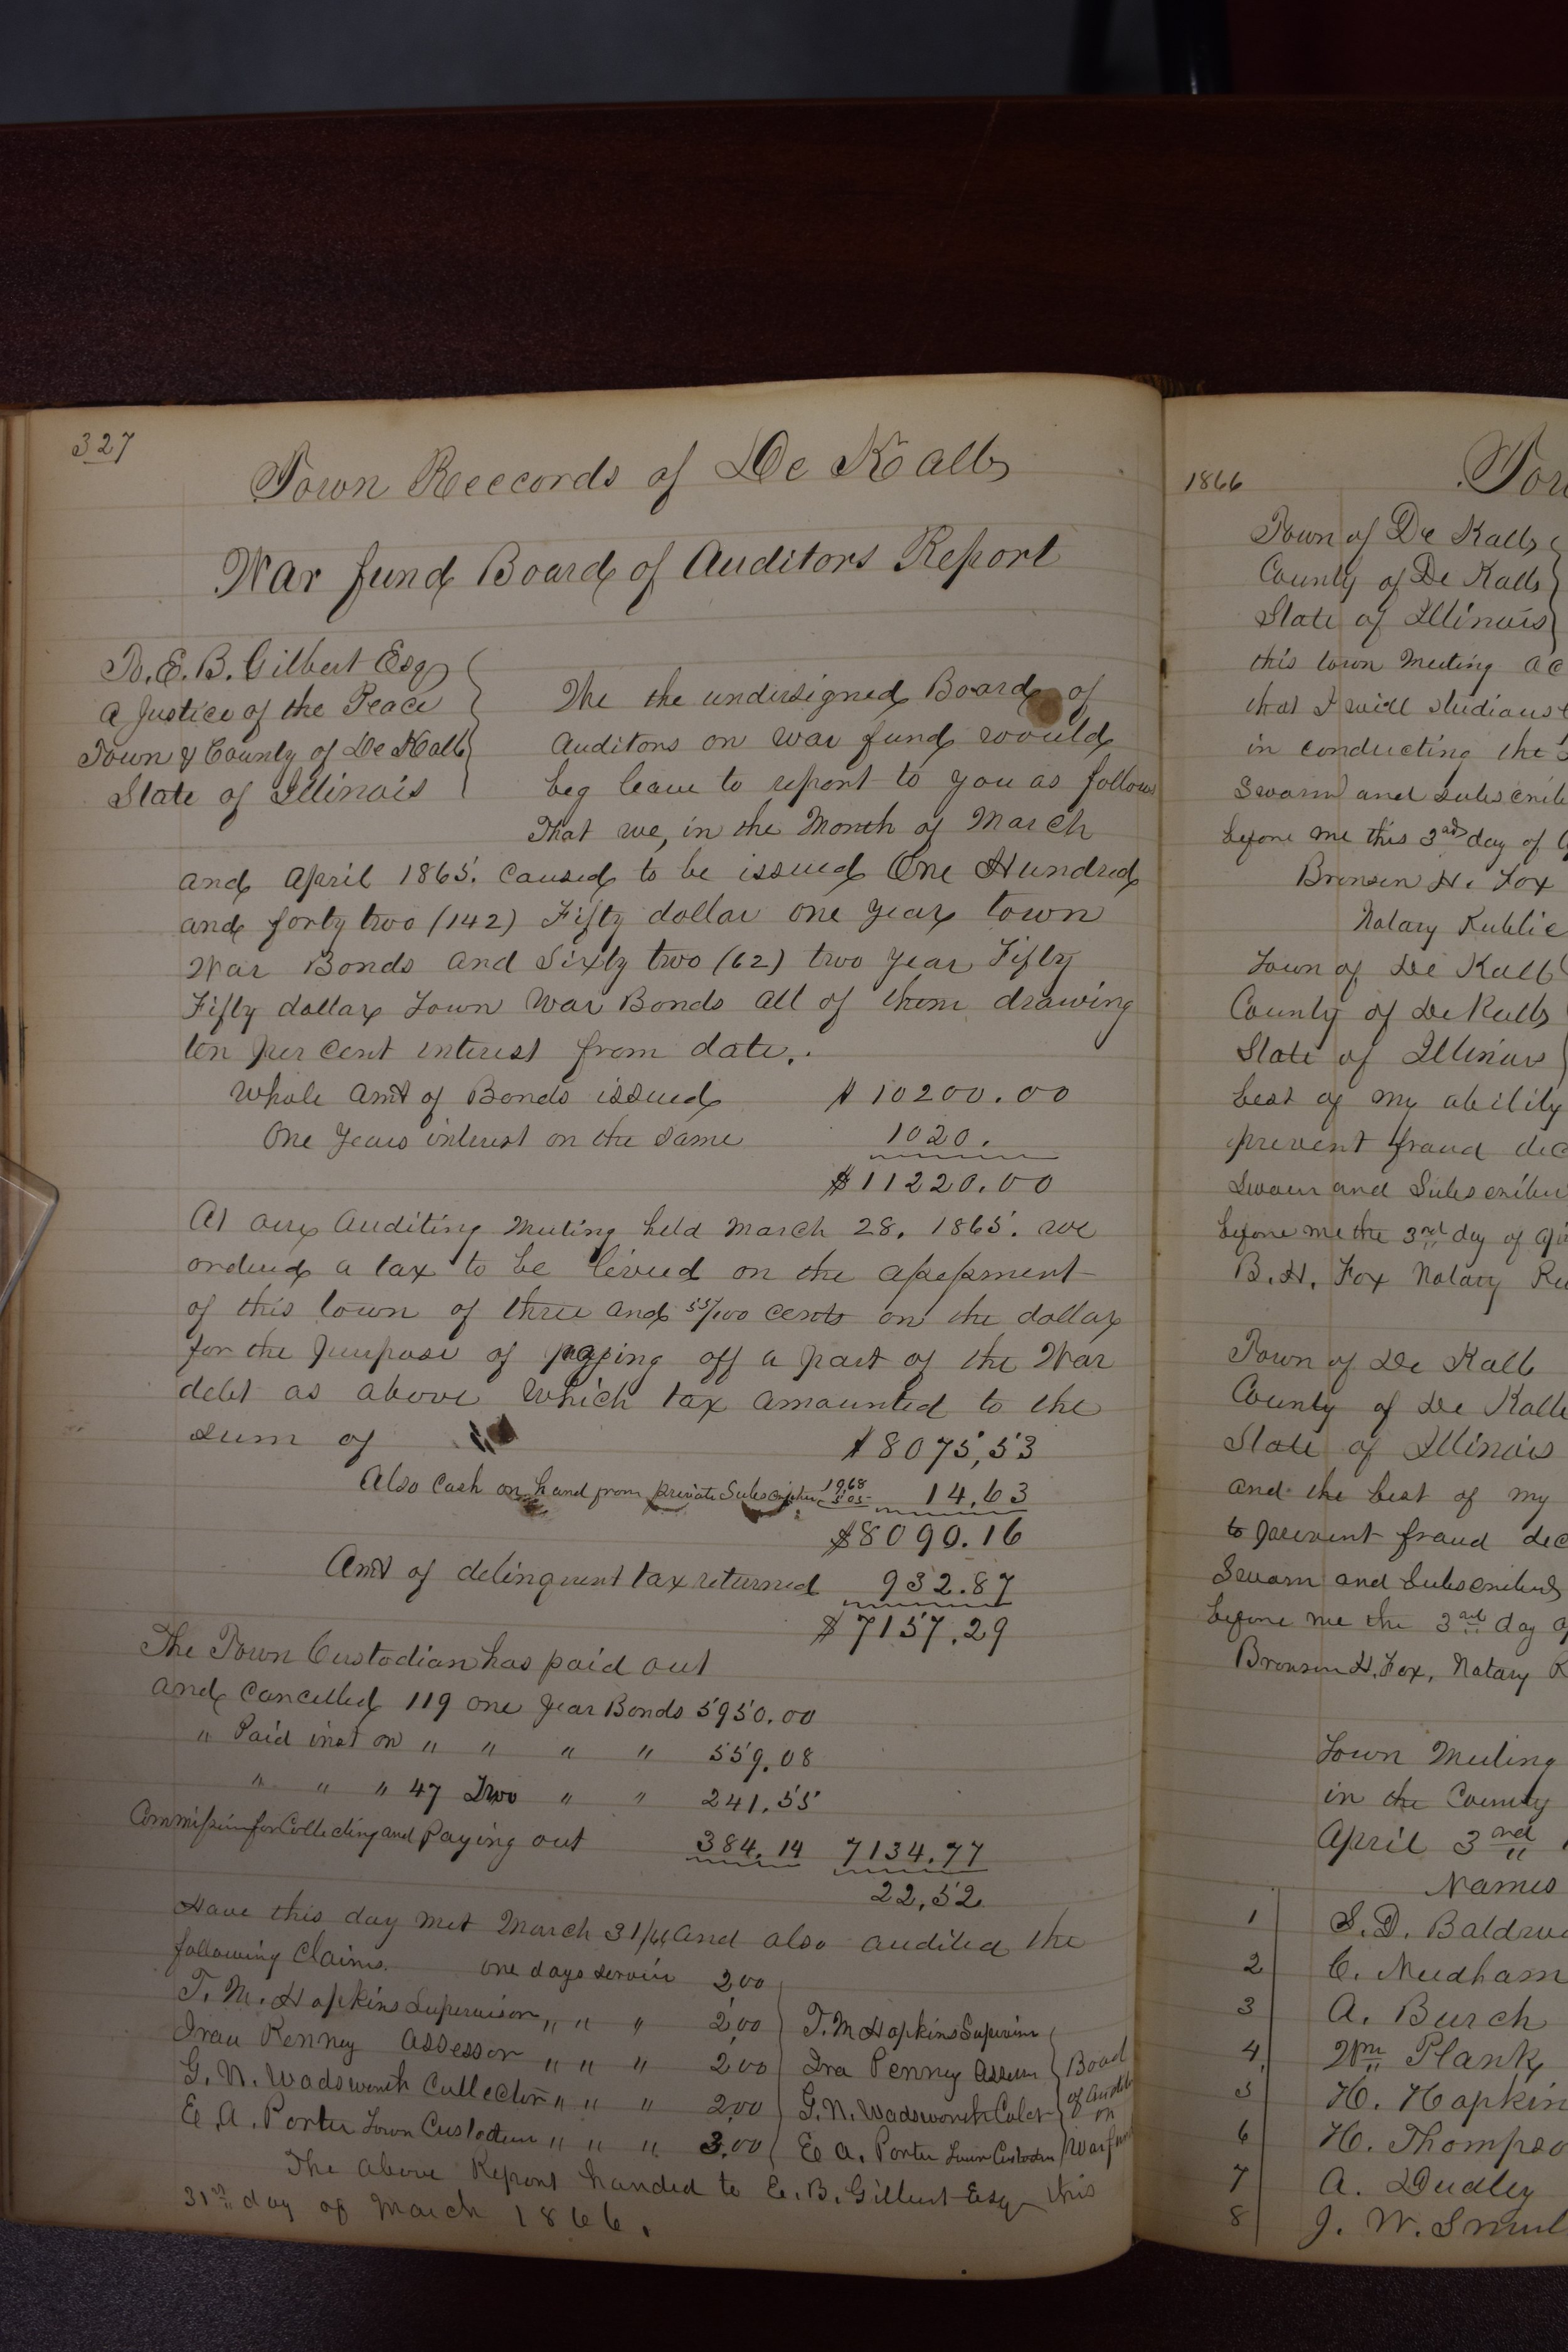 327
Town Reecords of De Kalb
War fund Board of Auditors Report
To. E. B. Gilbert Esq
a Justice of the Peace
Town & County of De Kalb
State of Illinois
We the undersigned Board of
Auditors on war fund would
beg leave to report to you as follows
That we, in the Month of March
and April 1865. caused to be issued One Hundred
and forty two (142) Fifty dollar one year town
War Bonds and Sixty two (62) two year Fifty
Fifty dollar Town War Bonds all of them drawing
ten per cent interest from date.
Whole Amt of Bonds issued $10200.00
One Years interest on the same 1020.
$11220.00
At our Auditing Meeting held March 28. 1865. we
ordered a tax to be levied on the assessment
of this town of three and 55/100 cents on the dollar
for the purpose of paying off a part of the War
debt as above which tax amounted to the
sum of $8075,53
Also Cash on hand from private Subscription 1968 505 14,63
$8090.16
Amt of delinquent tax returned 932.87
$7157.29
The Town Custodian has paid out
and Cancelled 119 one year Bonds 5950.00
" Paid inst on " " " " 559.08
" " " 47 Two " " 241.55
Commission for Collecting and Paying out 384.14 7134.77
22,52
Have this day met March 31/66 and also audited the
following Claims. one days service 2,00
T. M. Hopkins Supervisor " " " 2,00
Iraa Penney Assessor " " " 2,00
G. N. Wadsworth Collector " " " 2,00
E. A. Porter Town Custodian " " " 3,00
T. M Hopkins Supervisor
Ira Penney Assessor
G. N. Wadsworth Colect
E A. Porter Town Custodian
Board
of Audit
on
War fund
The above Report handed to E. B. Gilbert Esq this
31st day of March 1866.
1866
Town of De Kalb
County of De Kalb
State of Illinois
this town Meeting
that I will studious
in conducting the
Sworn and subscribe
before me this 3rd day of
Bronson H. Fox
Notary Public
Town of De Kalb
County of De Kalb
State of Illinois
best of my ability
prevent fraud dec
Sworn and Subscribe
before me the 3rd day of
B. H. Fox Notary
Town of De Kalb
County of De Kalb
State of Illinois
and the best of my
to prevent fraud dec
Sworn and Subscribed
before me the 3rd day
Bronson H. Fox, Notary
Town Meeting
in the County
April 3rd
Names
1 S. D. Baldwi
2 C. Needham
3 A. Burch
4. Wm Plank
5 H. Hopkin
6 H. Thompso
7 A. Dudley
8 J. W. Smul